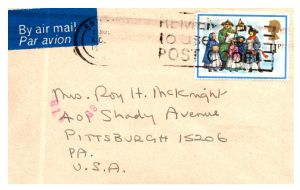 By air mail
Par avion
REMEM
TO USE
POST
Mrs. Roy H. McKnight
401 Shady Avenue
PITTSBURGH 15206
PA.
U.S.A.